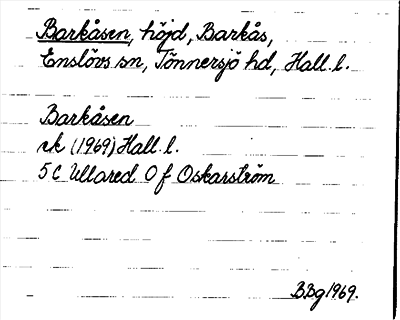 Barkåsen, höjd, Barkås,
Enslövs sn, Tönnersjö hd, Hall. l.
Barkåsen
rk (1969) Hall. l.
5 C Ullared 0 f Oskarström
BBg 1969.